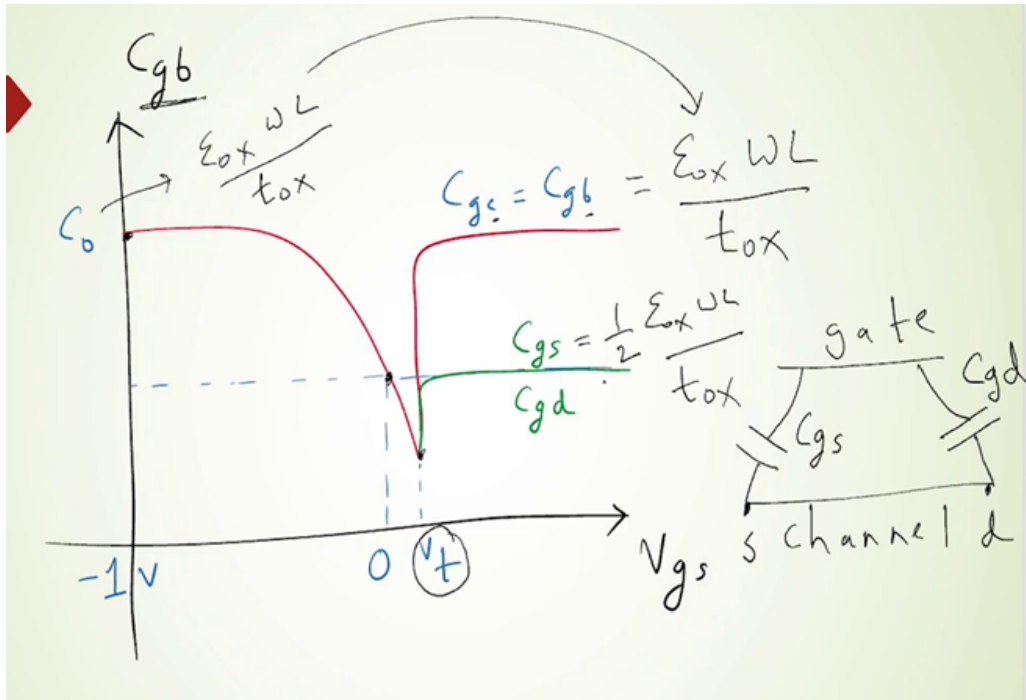 Cgb
C₀
εox WL / tox
Cgc = Cgb = εox WL / tox
Cgs = 1/2 εox WL / tox
Cgd
gate
Cgd
Cgs
s channel d
-1 V
0
Vt
Vgs